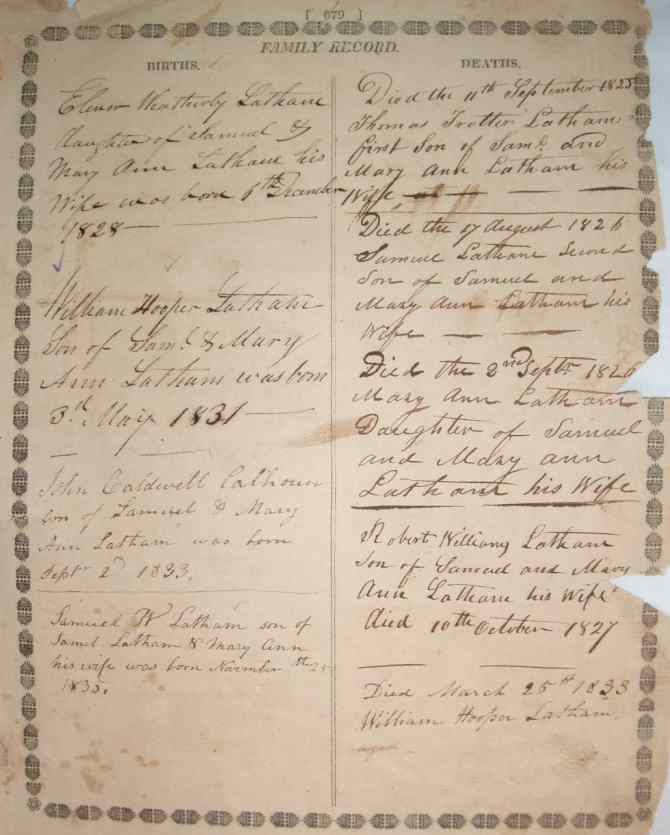 [ 679 ]
FAMILY RECORD.
BIRTHS.
Elenor Weatherly Latham
daughter of Samuel &
Mary Ann Latham his
Wife was born 1th December
1828
William Hooper Latham
Son of Saml. & Mary
Ann Latham was born
3th May 1831
John Caldwell Calhoun
son of Samuel & Mary
Ann Latham was born
Septr 2d 1833.
Samuel W Latham son of
Saml. Latham & Mary Ann
his wife was born November th25
1835.
DEATHS.
Died the 11th September 1825
Thomas Trotter Latham
first Son of Saml. and
Mary Ann Latham his
Wife
Died the 17 August 1826
Samuel Latham Second
Son of Samuel and
Mary Ann Latham his
Wife
Died the 2nd Septr 1826
Mary Ann Latham
Daughter of Samuel
and Mary ann
Latham his Wife
Robert William Latham
Son of Samuel and Mary
Ann Latham his Wife
died 10th October 1827
Died March 25th 1833
William Hooper Latham
aged